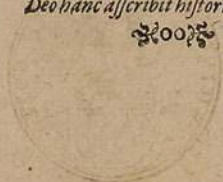 Deo hanc aſſcribit hiſtor